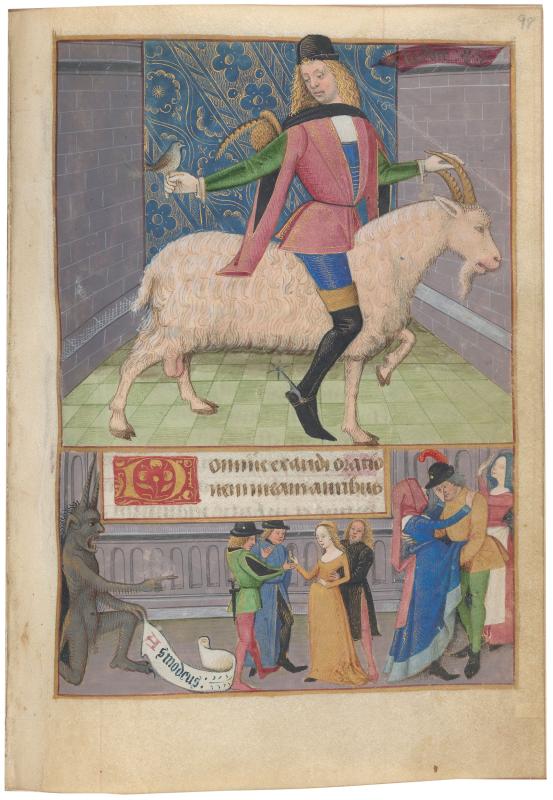 98
Domine exaudi oratio
nem meam auribus
Asmodeus.